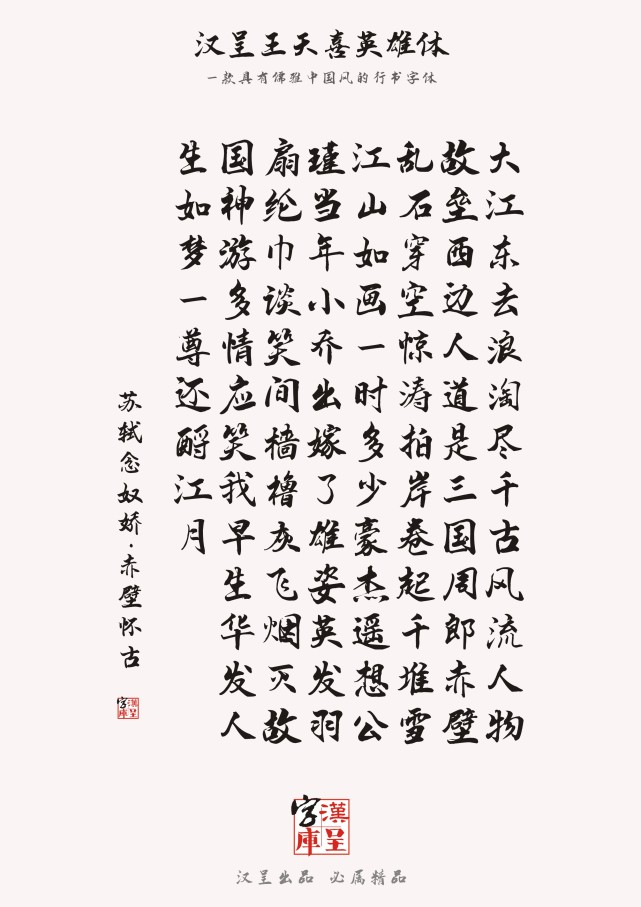 汉呈王天喜英雄体
一款具有儒雅中国风的行书字体
大江东去浪淘尽千古风流人物
故垒西边人道是三国周郎赤壁
乱石穿空惊涛拍岸卷起千堆雪
江山如画一时多少豪杰遥想公
瑾当年小乔出嫁了雄姿英发羽
扇纶巾谈笑间樯橹灰飞烟灭故
国神游多情应笑我早生华发人
生如梦一尊还酹江月
苏轼念奴娇·赤壁怀古
漢呈字庫
漢呈字庫
汉呈出品 必属精品